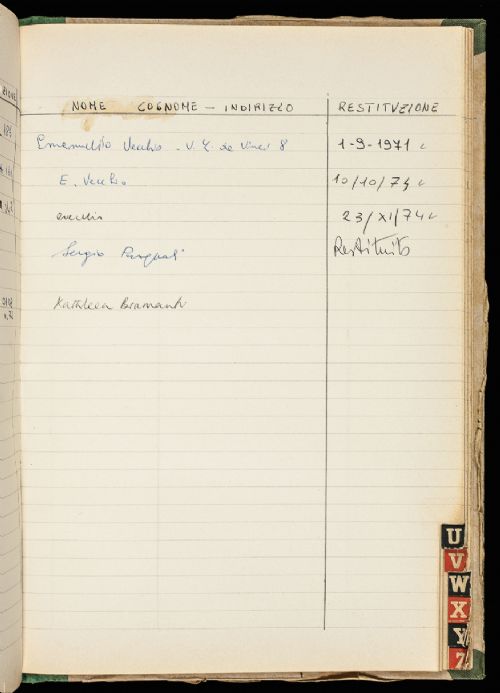 NOME COGNOME - INDIRIZZO RESTITUZIONE
Vecchio - V. L. da Vinci 8 1-9-1971
E. Vecchio 10/10/74
23/XI/74
Sergio Restituito
Kathleen Bramanti
U
V
W
X
Y
Z